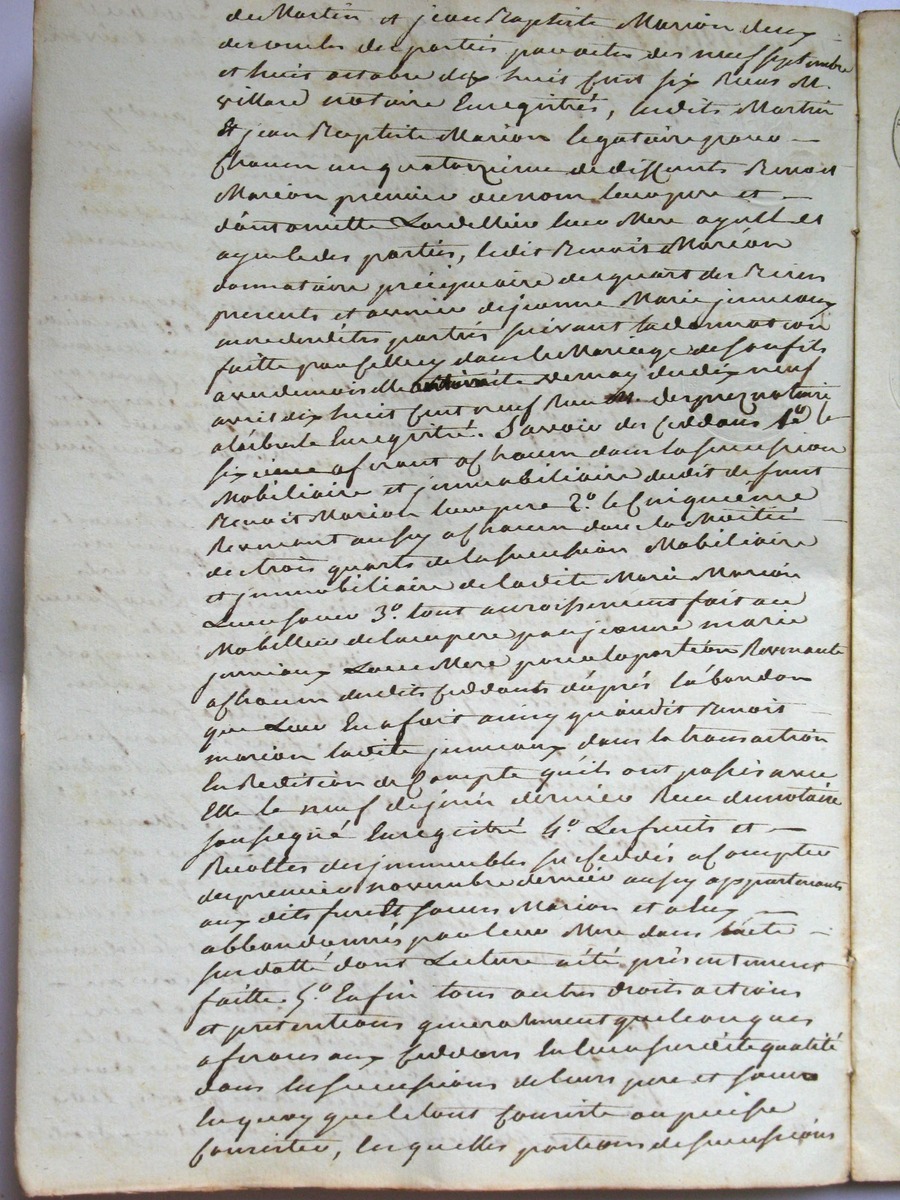 de Martin et jean Baptiste Marion deux
des oncles des parties par actes des neuf septembre
et huit octobre dix huit cent six Recus Me
villard notaire Enregistrés, ledits Martin
Et jean Baptiste Marion legataire pour
Chacun un quatorzieme de deffunts Benoit
Marion premier du nom leur pere et
d'antoinette Lardellier leur Mere ayeull et
ayeule des parties, ledit Benoit Marion
donnataire préciputaire du quart des Biens
presents et avenir de jeanne Marie jumeaux
mere desdites parties suivant la donnation
faitte par Celle cy dans le Mariage de son fils
avec demoiselle vernay du dix neuf
avril dix huit Cent neuf Recu Me desprez notaire
alabrale Enregistré. Savoir des Ceddans 1o Le
sixieme aferant a Chacun dans la succession
Mobiliaire et jmmobiliaire dudit defunt
Benoit Marion leur pere 2o. le Cinquieme
Revenant aussy a Chacun dans la Moitié
de trois quarts de la succession Mobiliaire
et jmmobiliaire de ladite Marie Marion
Leur soeur 3o. tout accroissement fait au
Mobillier de leur pere par jeanne marie
jumeaux Leur Mere pour la portion Revenante
a Chacun desdits Ceddants d'après l'abandon
que Leur En a fait ainsy qu'audit Benoit
marion ladite jumeaux dans la transaction
En Reddition de Compte qu'ils ont passés avec
Elle le neuf de juin dernier Recu du notaire
soussigné Enregistré 4o. Les fruits et
Recoltes des jmmeubles sus Ceddés a Compter
du premier novembre dernier aussy appartenants
aux dits frere Et soeurs Marion et a Eux
abbandonnés par leur Mere dans l'acte
susdatté dont Lecture a été présentement
faitte. 5o. Enfin tous autres droits actions
et pretentions generalement quelconques
aferans aux Ceddans En leur susdite qualité
dans les successions de leurs pere et soeur
En quoy que le tout Consiste ou puisse
Consister, lesquelles portions de successions